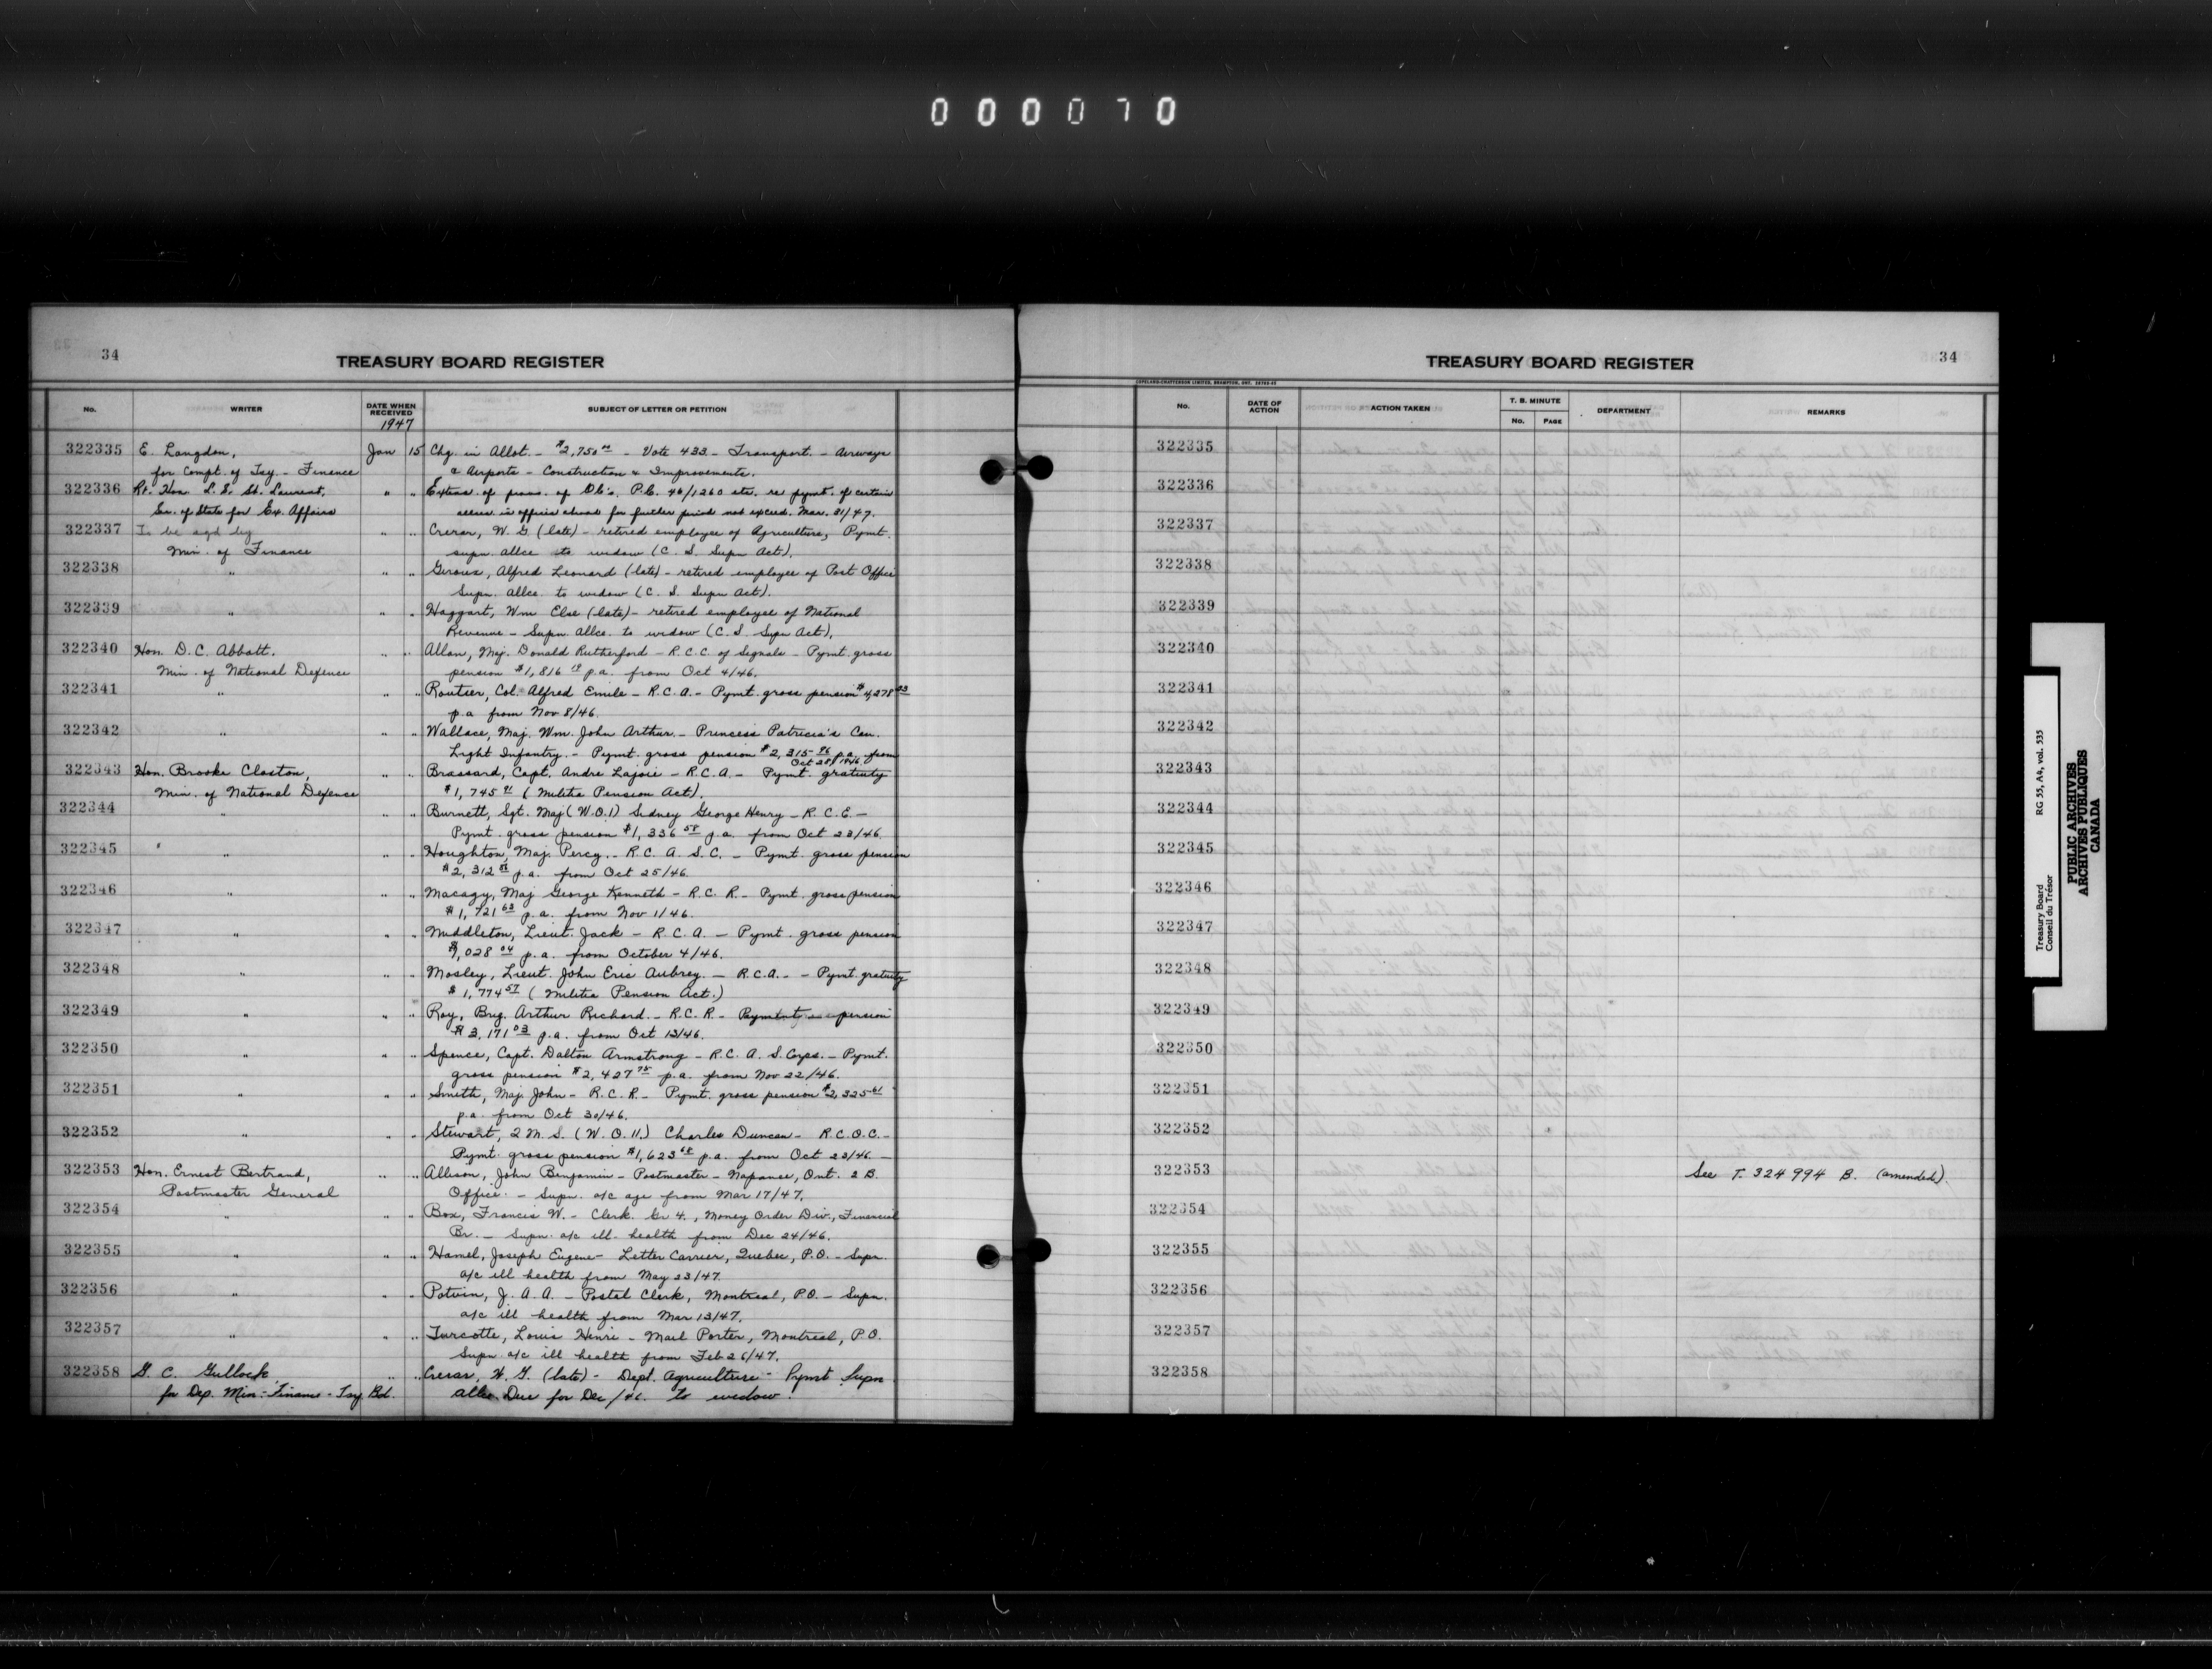 000070
34
TREASURY BOARD REGISTER
No. WRITER DATE WHEN RECEIVED SUBJECT OF LETTER OR PETITION
1947
322335 E. Langdon, Jan 15 Chg. in Allot. - $2,750.00 - Vote 433 - Transport. - Airways
for Compt. of Tsy. - Finance & Airports - Construction & Improvements.
322336 Rt. Hon. L. S. St. Laurent, " " Extens. of provs. of P.C. 46/1260 etc. re pymt. of certain
Sec. of State for Ex. Affairs allces in offices abroad for further period not exceed. Mar. 31/47.
322337 To be sgd by " " Crerar, W. G. (late) - retired employee of Agriculture, Pymt.
Min. of Finance supn. allce to widow (C. S. Supn Act).
322338 " " " Giroux, Alfred Leonard (late) - retired employee of Post Office
Supn. allce. to widow (C. S. Supn Act).
322339 " " " Haggart, Wm Else (late) - retired employee of National
Revenue - Supn. Allce. to widow (C. S. Supn Act).
322340 Hon. D. C. Abbott, " " Allan, Maj. Donald Rutherford - R.C.C. of Signals - Pymt. gross
Min. of National Defence pension $1,816 p.a. from Oct 4/46.
322341 " " " Routier, Col. Alfred Emile - R.C.A. - Pymt. gross pension $4,278
p.a from Nov 8/46.
322342 " " " Wallace, Maj. Wm. John Arthur - Princess Patricia's Can.
Light Infantry. - Pymt. gross pension $2,315 96 p.a. from
Oct 28/1946.
322343 Hon. Brooke Claxton, " " Brassard, Capt. Andre Lajoie - R.C.A. - Pymt. gratuity
Min. of National Defence $1,745 (Militia Pension Act).
322344 " " " Burnett, Sgt. Maj (W.O.1) Sidney George Henry - R.C.E. -
Pymt. gross pension $1,336 58 p.a. from Oct 23/46.
322345 " " " Houghton, Maj. Percy. - R.C.A.S.C. - Pymt. gross pension
$2,312 p.a. from Oct 25/46.
322346 " " " Macagy, Maj George Kenneth - R.C.R. - Pymt. gross pension
$1,721 63 p.a. from Nov 1/46.
322347 " " " Middleton, Lieut. Jack - R.C.A. - Pymt. gross pension
$1,028 04 p.a. from October 4/46.
322348 " " " Mosley, Lieut. John Eric Aubrey. - R.C.A. - Pymt. gratuity
$1,774 57 (Militia Pension Act.)
322349 " " " Roy, Brig. Arthur Richard. - R.C.R - Payment gross pension
$3,171 03 p.a. from Oct 13/46.
322350 " " " Spence, Capt. Dalton Armstrong - R.C.A.S. Corps. - Pymt.
gross pension $2,427 75 p.a. from Nov 22/46.
322351 " " " Smith, Maj. John - R.C.R - Pymt. gross pension $2,325 61
p.a. from Oct 30/46.
322352 " " " Stewart, 2 M. S. (W.O.11.) Charles Duncan - R.C.O.C. -
Pymt. gross pension $1,623 68 p.a. from Oct 23/46. -
322353 Hon. Ernest Bertrand, " " Allison, John Benjamin - Postmaster - Napanee, Ont. 2 B.
Postmaster General Office. - Supn. a/c age from Mar 17/47.
322354 " " " Box, Francis W. - Clerk. Gr 4., Money Order Div., Financial
Br. - Supn. a/c ill health from Dec 24/46.
322355 " " " Hamel, Joseph Eugene - Letter Carrier, Quebec, P.O. - Supn.
a/c ill health from May 23/47.
322356 " " " Potvin, J. A. A. - Postal Clerk, Montreal, P.O. - Supn.
a/c ill health from Mar 13/47.
322357 " " " Turcotte, Louis Henri - Mail Porter, Montreal, P.O.
Supn. a/c ill health from Feb 26/47.
322358 G. C. Gullock, " " Crerar, W. G. (late) - Dept. Agriculture - Pymt Supn
for Dep. Min. - Finance - Tsy Bd. allce. Due for Dec/46. to widow.
34
TREASURY BOARD REGISTER
COPELAND-CHATTERSON LIMITED, BRAMPTON, ONT.
No. DATE OF ACTION ACTION TAKEN T. B. MINUTE No. PAGE DEPARTMENT REMARKS
322335
322336
322337
322338
322339
322340
322341
322342
322343
322344
322345
322346
322347
322348
322349
322350
322351
322352
322353 See T. 324994 B. (amended).
322354
322355
322356
322357
322358
Treasury Board RG 55, A4, vol. 535
Conseil du Trésor
PUBLIC ARCHIVES
ARCHIVES PUBLIQUES
CANADA